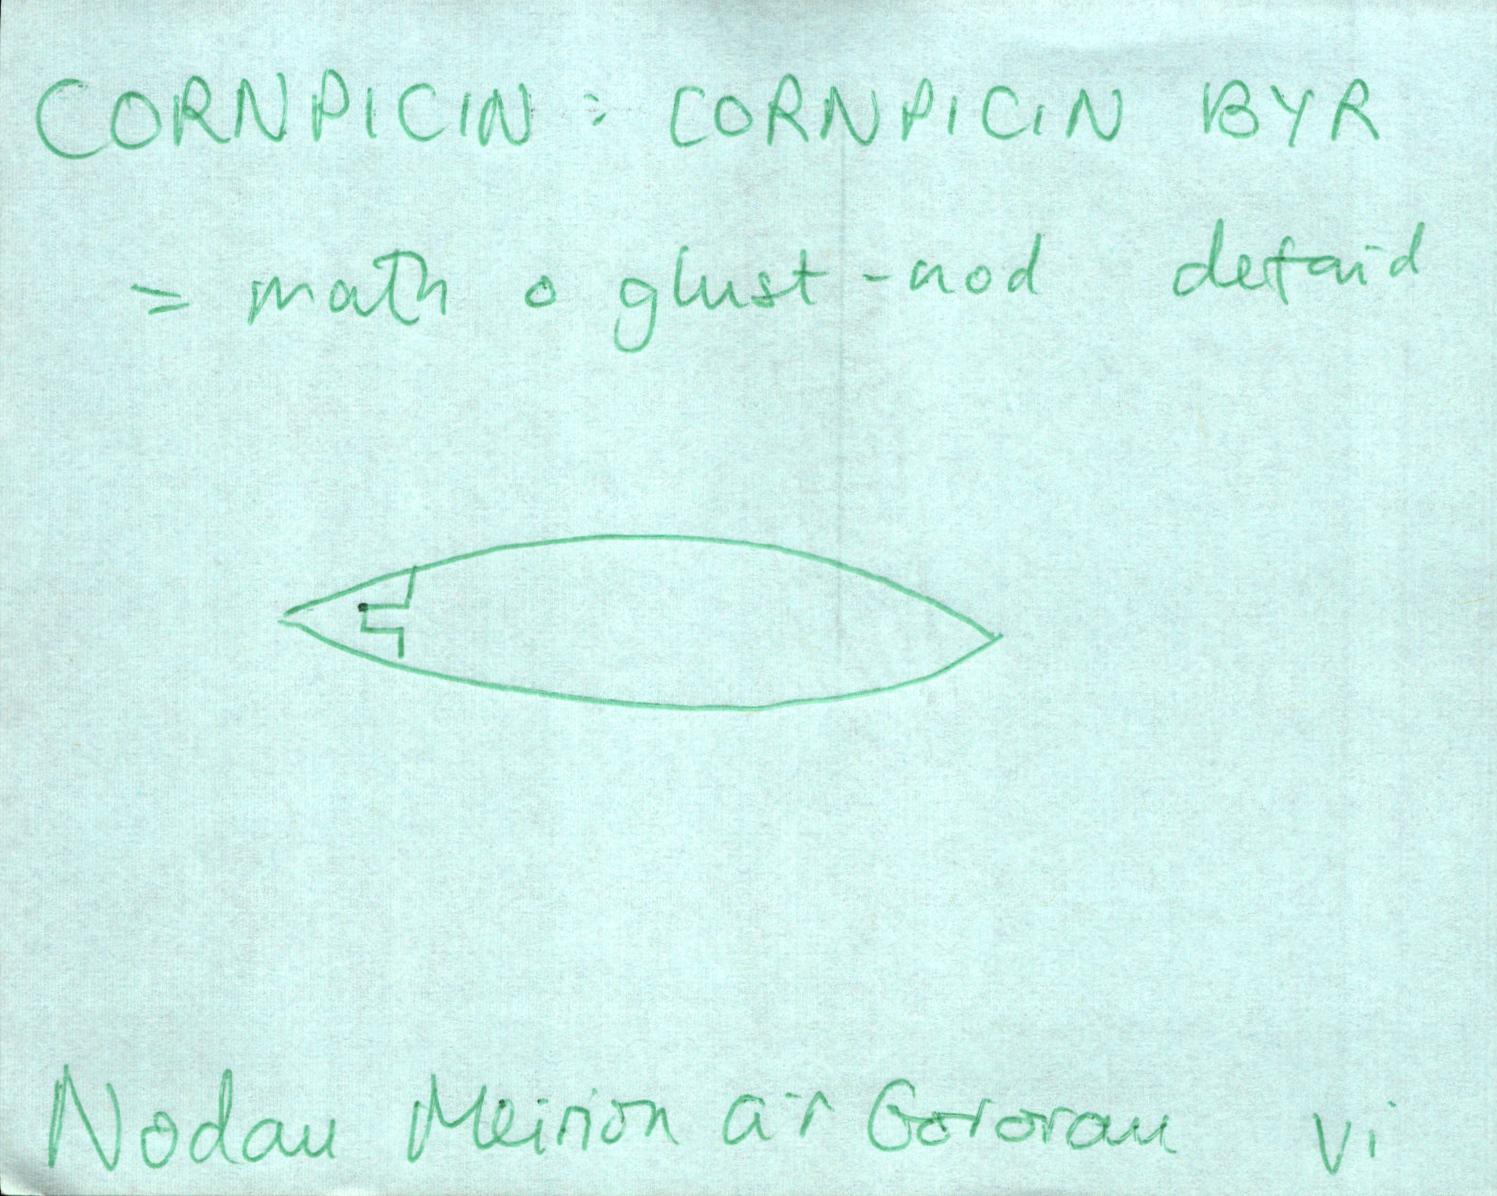 CORNPICIN : CORNPICIN BYR
= math o glust-nod defaid
Nodau Meirion a'r Gororau vi